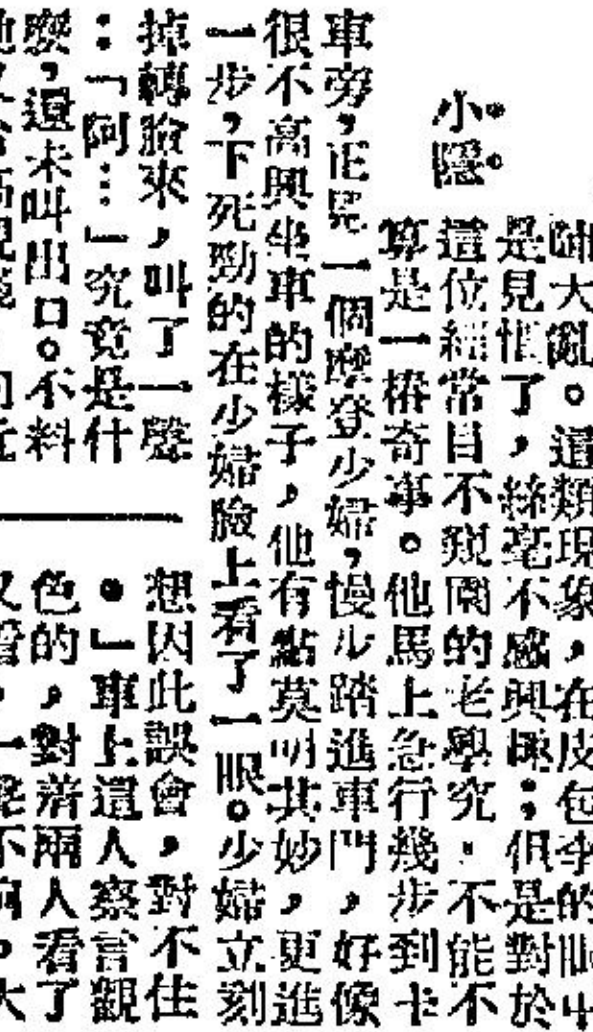 小隱
陣大亂。這類現象，在皮包李的眼中
是見慣了，絲毫不感興趣；但是對於
這位經常目不窺園的老學究，不能不
算是一樁奇事。他馬上急行幾步到卡
車旁，正見一個摩登少婦，慢步踏進車門，好像
很不高興坐車的樣子，他有點莫明其妙，更進
一步，下死勁的在少婦臉上看了一眼。少婦立刻
掉轉臉來，叫了一聲
：「阿…」究竟是什
麽，還未叫出口。不料
想因此誤會，對不住
。」車上這人察言觀
色的，對着兩人看了